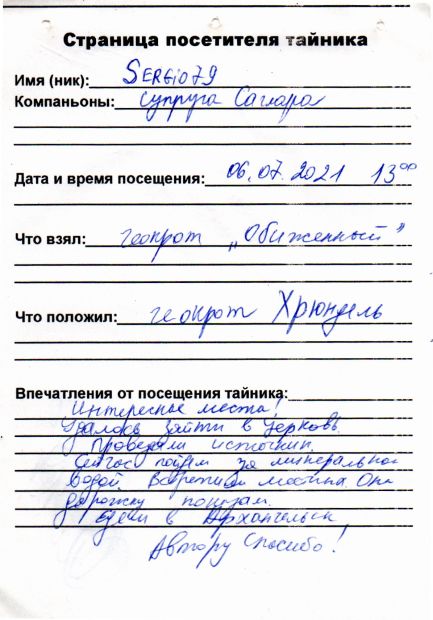 Страница посетителя тайника
Имя (ник): SERGIO79
Компаньоны: супруга Саглара
Дата и время посещения: 06.07.2021 13⁰⁰
Что взял: геокрот „Обиженный"
Что положил: геокрот Хрюндель
Впечатления от посещения тайника:
Интересные места!
Удалось зайти в церковь.
Проведали источник.
Сейчас пойдём за минеральной
водой. Встретили местных Они
дорожку показали.
Едем в Архангельск
Автору Спасибо!